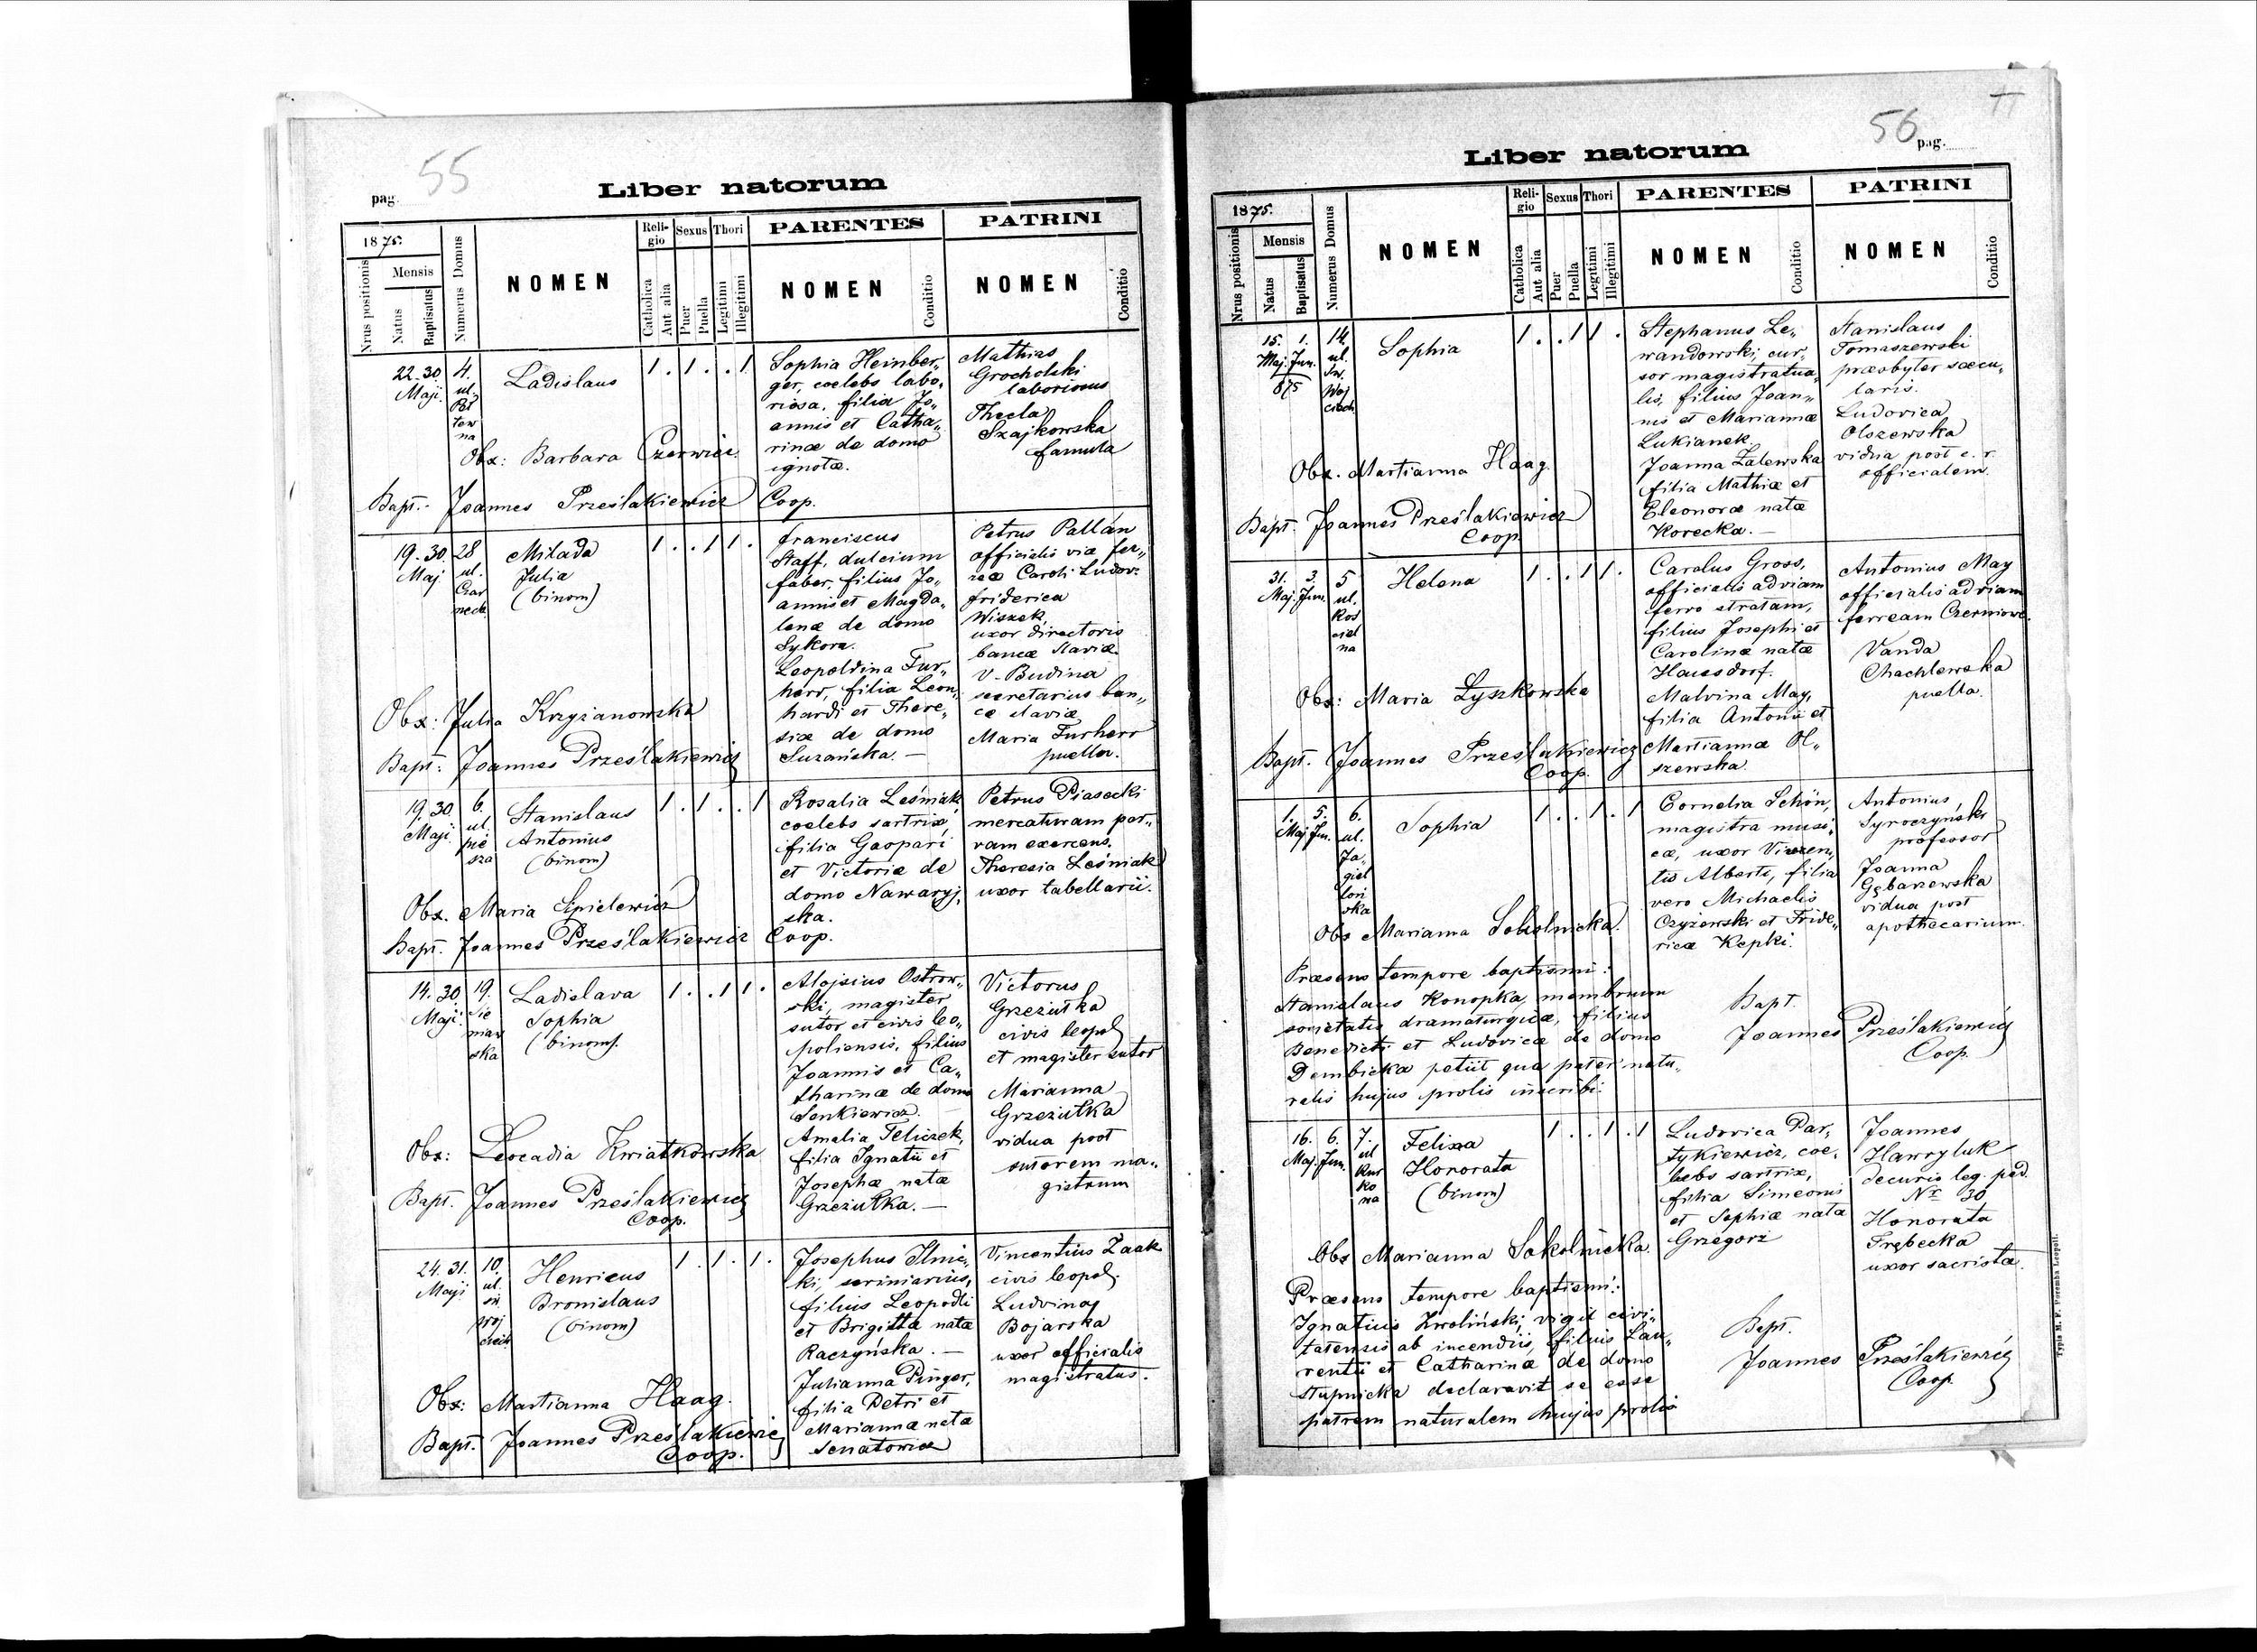 55
pag.
Liber natorum
1875.
Nrus positionis
Mensis
Natus
Baptisatus
Numerus Domus
NOMEN
Reli-
gio
Catholica
Aut alia
Sexus
Puer
Puella
Thori
Legitimi
Illegitimi
PARENTES
NOMEN
Conditio
PATRINI
NOMEN
Conditio
22. 30
Maji.
4.
ul.
tew
na
Ladislaus
1 . 1 . . 1
Sophia Heinber„
ger, coelebs labo„
riosa, filia Jo„
annis et Catha„
rinæ de domo
ignotæ.
Mathias
Grocholski
laboriosus
Thecla
Szajkowska
famula
Obx: Barbara Czerwicz.
Bapt. Joannes Prześlakiewicz Coop.
19. 30.
Maj.
28
ul.
Czar
neck.
Milada
Julia
(binom)
1 . . 1 1 .
Franciscus
Staff, dulcium
faber, filius Jo„
annis et Magda„
lenæ de domo
Sykora.
Leopoldina Fur„
herr, filia Leon„
hardi et There„
siæ de domo
Suzańska. —
Petrus Pallán
officialis viæ fer„
reæ Caroli Ludov.
Friderica
Wiszek,
uxor directoris
bancæ slaviæ.
V. Budina
secretarius ban„
cæ slaviæ
Maria Furherr
puella.
Obx: Julia Krzyżanowska
Bapt: Joannes Prześlakiewicz
19. 30.
Maji.
6.
ul.
pie
sza
Stanislaus
Antonius
(binom)
1 . 1 . . 1
Rosalia Leśniak
coelebs sartrix,
filia Gaspari
et Victoriæ de
domo Nawaryj„
ska.
Petrus Piasecki
mercaturam par„
vam exercens.
Theresia Leśniak
uxor tabellarii.
Obx. Maria Sipielewicz
Bapt. Joannes Prześlakiewicz Coop.
14. 30.
Maji.
19.
Sie
niaw
ska
Ladislava
Sophia
(binom).
1 . . 1 1 .
Alojsius Ostrow„
ski, magister
sutor et civis leo„
poliensis, filius
Joannis et Ca„
tharinæ de domo
Senkiewicz.
Amalia Teliczek,
filia Ignatii et
Josephæ natæ
Grzeżułka. —
Victorus
Grzeżułka
civis leopol
et magister sutor
Marianna
Grzeżułka
vidua post
sutorem ma„
gistrum
Obx: Leocadia Kwiatkowska
Bapt. Joannes Prześlakiewicz
Coop.
24. 31.
Maji
10.
ul.
św.
woj
ciech
Henricus
Bronislaus
(binom)
1 . 1 . 1 .
Josephus Ilnic„
ki, scriniarius,
filius Leopoldi
et Brigittæ natæ
Raczyńska. —
Julianna Pinger,
filia Petri et
Mariannæ natæ
Senatowicz
Vincentius Zaak
civis leopol.
Ludvina
Bojarska
uxor officialis
magistratus.
Obx: Martianna Haag.
Bapt. Joannes Prześlakiewicz
Coop.
56
pag.
Liber natorum
1875.
Nrus positionis
Mensis
Natus
Baptisatus
Numerus Domus
NOMEN
Reli-
gio
Catholica
Aut alia
Sexus
Puer
Puella
Thori
Legitimi
Illegitimi
PARENTES
NOMEN
Conditio
PATRINI
NOMEN
Conditio
15. 1.
Maj. Jun.
875
14.
ul.
Św.
Woj
ciech
Sophia
1 . . 1 1 .
Stephanus Le„
wandowski, cur„
sor magistratua„
lis, filius Joan„
nis et Mariannæ
Lukianek.
Joanna Zalewska
filia Mathiæ et
Eleonoræ natæ
Korecka. —
Stanislaus
Tomaszewski
præsbyter sæcu„
laris.
Ludovica
Olszewska
vidua post c. r.
officialem.
Obx. Martianna Haag.
Bapt. Joannes Prześlakiewicz
Coop.
31. 3.
Maj. Jun.
5
ul.
Kos
ciel
na
Helena
1 . . 1 1 .
Carolus Gross,
officialis ad viam
ferro stratam,
filius Josephi et
Carolinæ natæ
Hausdorf.
Malvina May,
filia Antonii et
Martiannæ Ol„
szewska.
Antonius May
officialis ad viam
ferream Czerniow.
Vanda
Chachlewska
puella.
Obx: Maria Łyszkowska
Bapt. Joannes Prześlakiewicz
Coop.
1. 5.
Maj Jun.
6.
ul.
Ja„
giel
loń
ska
Sophia
1 . . 1 . 1
Cornelia Schön,
magistra musi„
cæ, uxor Vincen„
tis Alberti, filia
vero Michaelis
Czyżewski et Fride„
ricæ Kepki.
Antonius
Syroczyński
professor
Joanna
Gębarzewska
vidua post
apothecarium.
Obs Marianna Sokolnicka.
Præsens tempore baptismi:
Stanislaus Konopka, membrum
societatis dramaturgicæ, filius
Benedicti et Ludovicæ de domo
Dembicka petiit qua pater natu„
ralis hujus prolis inscribi.
Bapt.
Joannes Prześlakiewicz
Coop.
16. 6.
Maj. Jun.
7.
ul
Kur
ko
na
Felixa
Honorata
(binom)
1 . . 1 . 1
Ludovica Par„
tykiewicz, coe„
lebs sartrix,
filia Simeonis
et Sophiæ natæ
Grzegorz
Joannes
Hawryluk
decurio leg. ped.
Nr 30
Honorata
Trębecka
uxor sacristæ.
Obs Marianna Sokolnicka.
Præsens tempore baptismi:
Ignatius Kwoliński, vigil civi„
tatensis ab incendiis, filius Lau„
rentii et Catharinæ de domo
Stupnicka declaravit se esse
patrem naturalem hujus prolis
Bapt.
Joannes Prześlakiewicz
Coop.
Typis M. F. Poremba Leopoli.